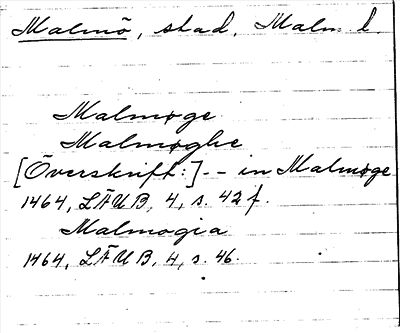 Malmö, stad, Malm. l.
Malmøge
Malmøghe
[Överskrift:] -- in Malmøge
1464, LÄUB, 4, s. 42 f.
Malmogia
1464, LÄUB, 4, s. 46.